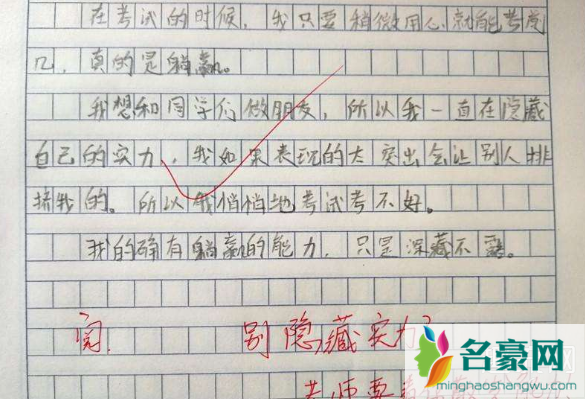 在考试的时候，我只要稍微用心就能考虑
几，真的是躺赢。
我想和同学们做朋友，所以我一直在隐藏
自己的实力，我如果表现的太突出会让别人排
挤我的。所以我悄悄地考试考不好。
我的确有躺赢的能力，只是深藏不露。
阅 别隐藏实力
老师要
名豪网
minghaoshangwu.com